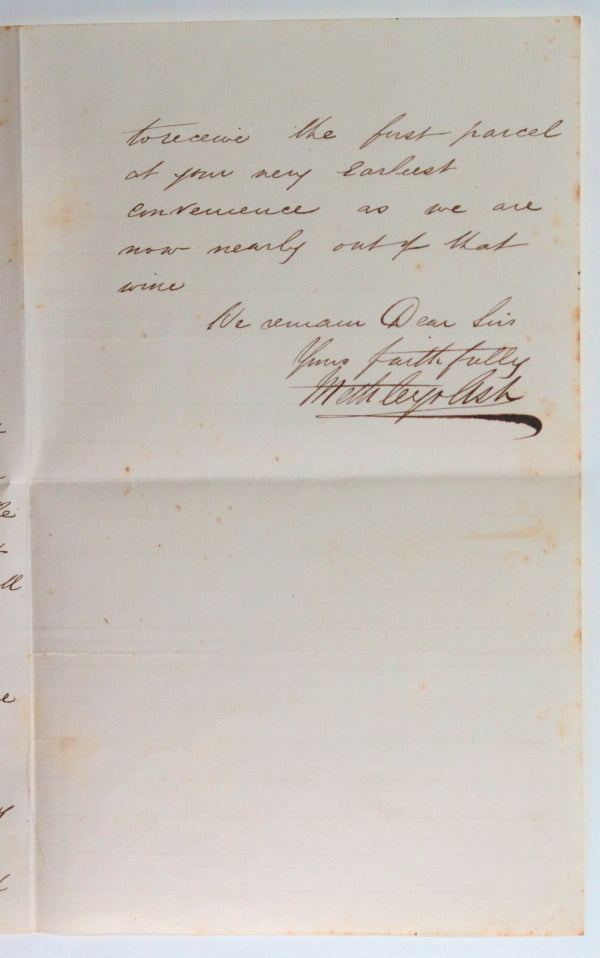 to receive the first parcel
at your very Earliest
convenience as we are
now nearly out of that
wine
We remain Dear Sirs
Yours faithfully